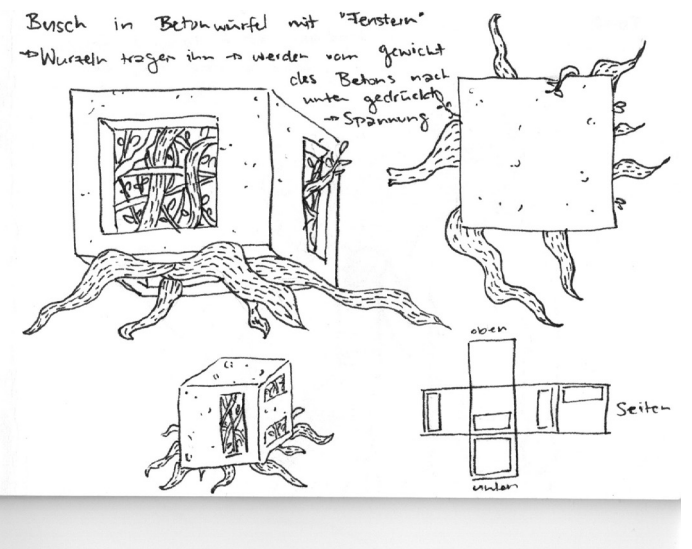 Busch in Betonwürfel mit "Fenstern"
→ Wurzeln tragen ihn → werden vom gewicht
des Betons nach
unten gedrückt
→ Spannung
oben
Seiten
unten